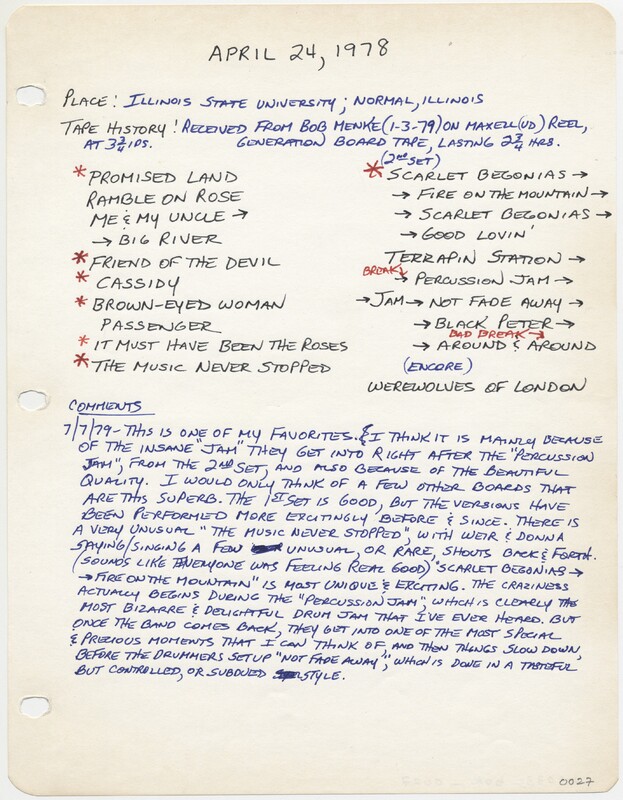 APRIL 24, 1978
PLACE: ILLINOIS STATE UNIVERSITY; NORMAL, ILLINOIS
TAPE HISTORY: RECEIVED FROM BOB MENKE (1-3-79) ON MAXELL (UD) REEL,
AT 3 3/4 IPS. GENERATION BOARD TAPE, LASTING 2 3/4 HRS.
* PROMISED LAND
RAMBLE ON ROSE
ME & MY UNCLE →
→ BIG RIVER
* FRIEND OF THE DEVIL
* CASSIDY
* BROWN-EYED WOMAN
PASSENGER
* IT MUST HAVE BEEN THE ROSES
* THE MUSIC NEVER STOPPED
(2nd SET)
* SCARLET BEGONIAS →
→ FIRE ON THE MOUNTAIN →
→ SCARLET BEGONIAS →
→ GOOD LOVIN'
TERRAPIN STATION →
BREAK
→ PERCUSSION JAM →
→ JAM → NOT FADE AWAY →
→ BLACK PETER →
BAD BREAK →
→ AROUND & AROUND
(ENCORE)
WEREWOLVES OF LONDON
COMMENTS
7/7/79 - THIS IS ONE OF MY FAVORITES. & I THINK IT IS MAINLY BECAUSE
OF THE INSANE "JAM" THEY GET INTO RIGHT AFTER THE "PERCUSSION
JAM", FROM THE 2nd SET, AND ALSO BECAUSE OF THE BEAUTIFUL
QUALITY. I WOULD ONLY THINK OF A FEW OTHER BOARDS THAT
ARE THIS SUPERB. THE 1st SET IS GOOD, BUT THE VERSIONS HAVE
BEEN PERFORMED MORE EXCITINGLY BEFORE & SINCE. THERE IS
A VERY UNUSUAL "THE MUSIC NEVER STOPPED", WITH WEIR & DONNA
SAYING/SINGING A FEW UNUSUAL, OR RARE, SHOUTS BACK & FORTH.
(SOUNDS LIKE EVERYONE WAS FEELING REAL GOOD) "SCARLET BEGONIAS →
→ FIRE ON THE MOUNTAIN" IS MOST UNIQUE & EXCITING. THE CRAZINESS
ACTUALLY BEGINS DURING THE "PERCUSSION JAM", WHICH IS CLEARLY THE
MOST BIZARRE & DELIGHTFUL DRUM JAM THAT I'VE EVER HEARD. BUT
ONCE THE BAND COMES BACK, THEY GET INTO ONE OF THE MOST SPECIAL
& PRECIOUS MOMENTS THAT I CAN THINK OF, AND THEN THINGS SLOW DOWN,
BEFORE THE DRUMMERS SETUP "NOT FADE AWAY", WHICH IS DONE IN A TASTEFUL
BUT CONTROLLED, OR SUBDUED STYLE.
0027